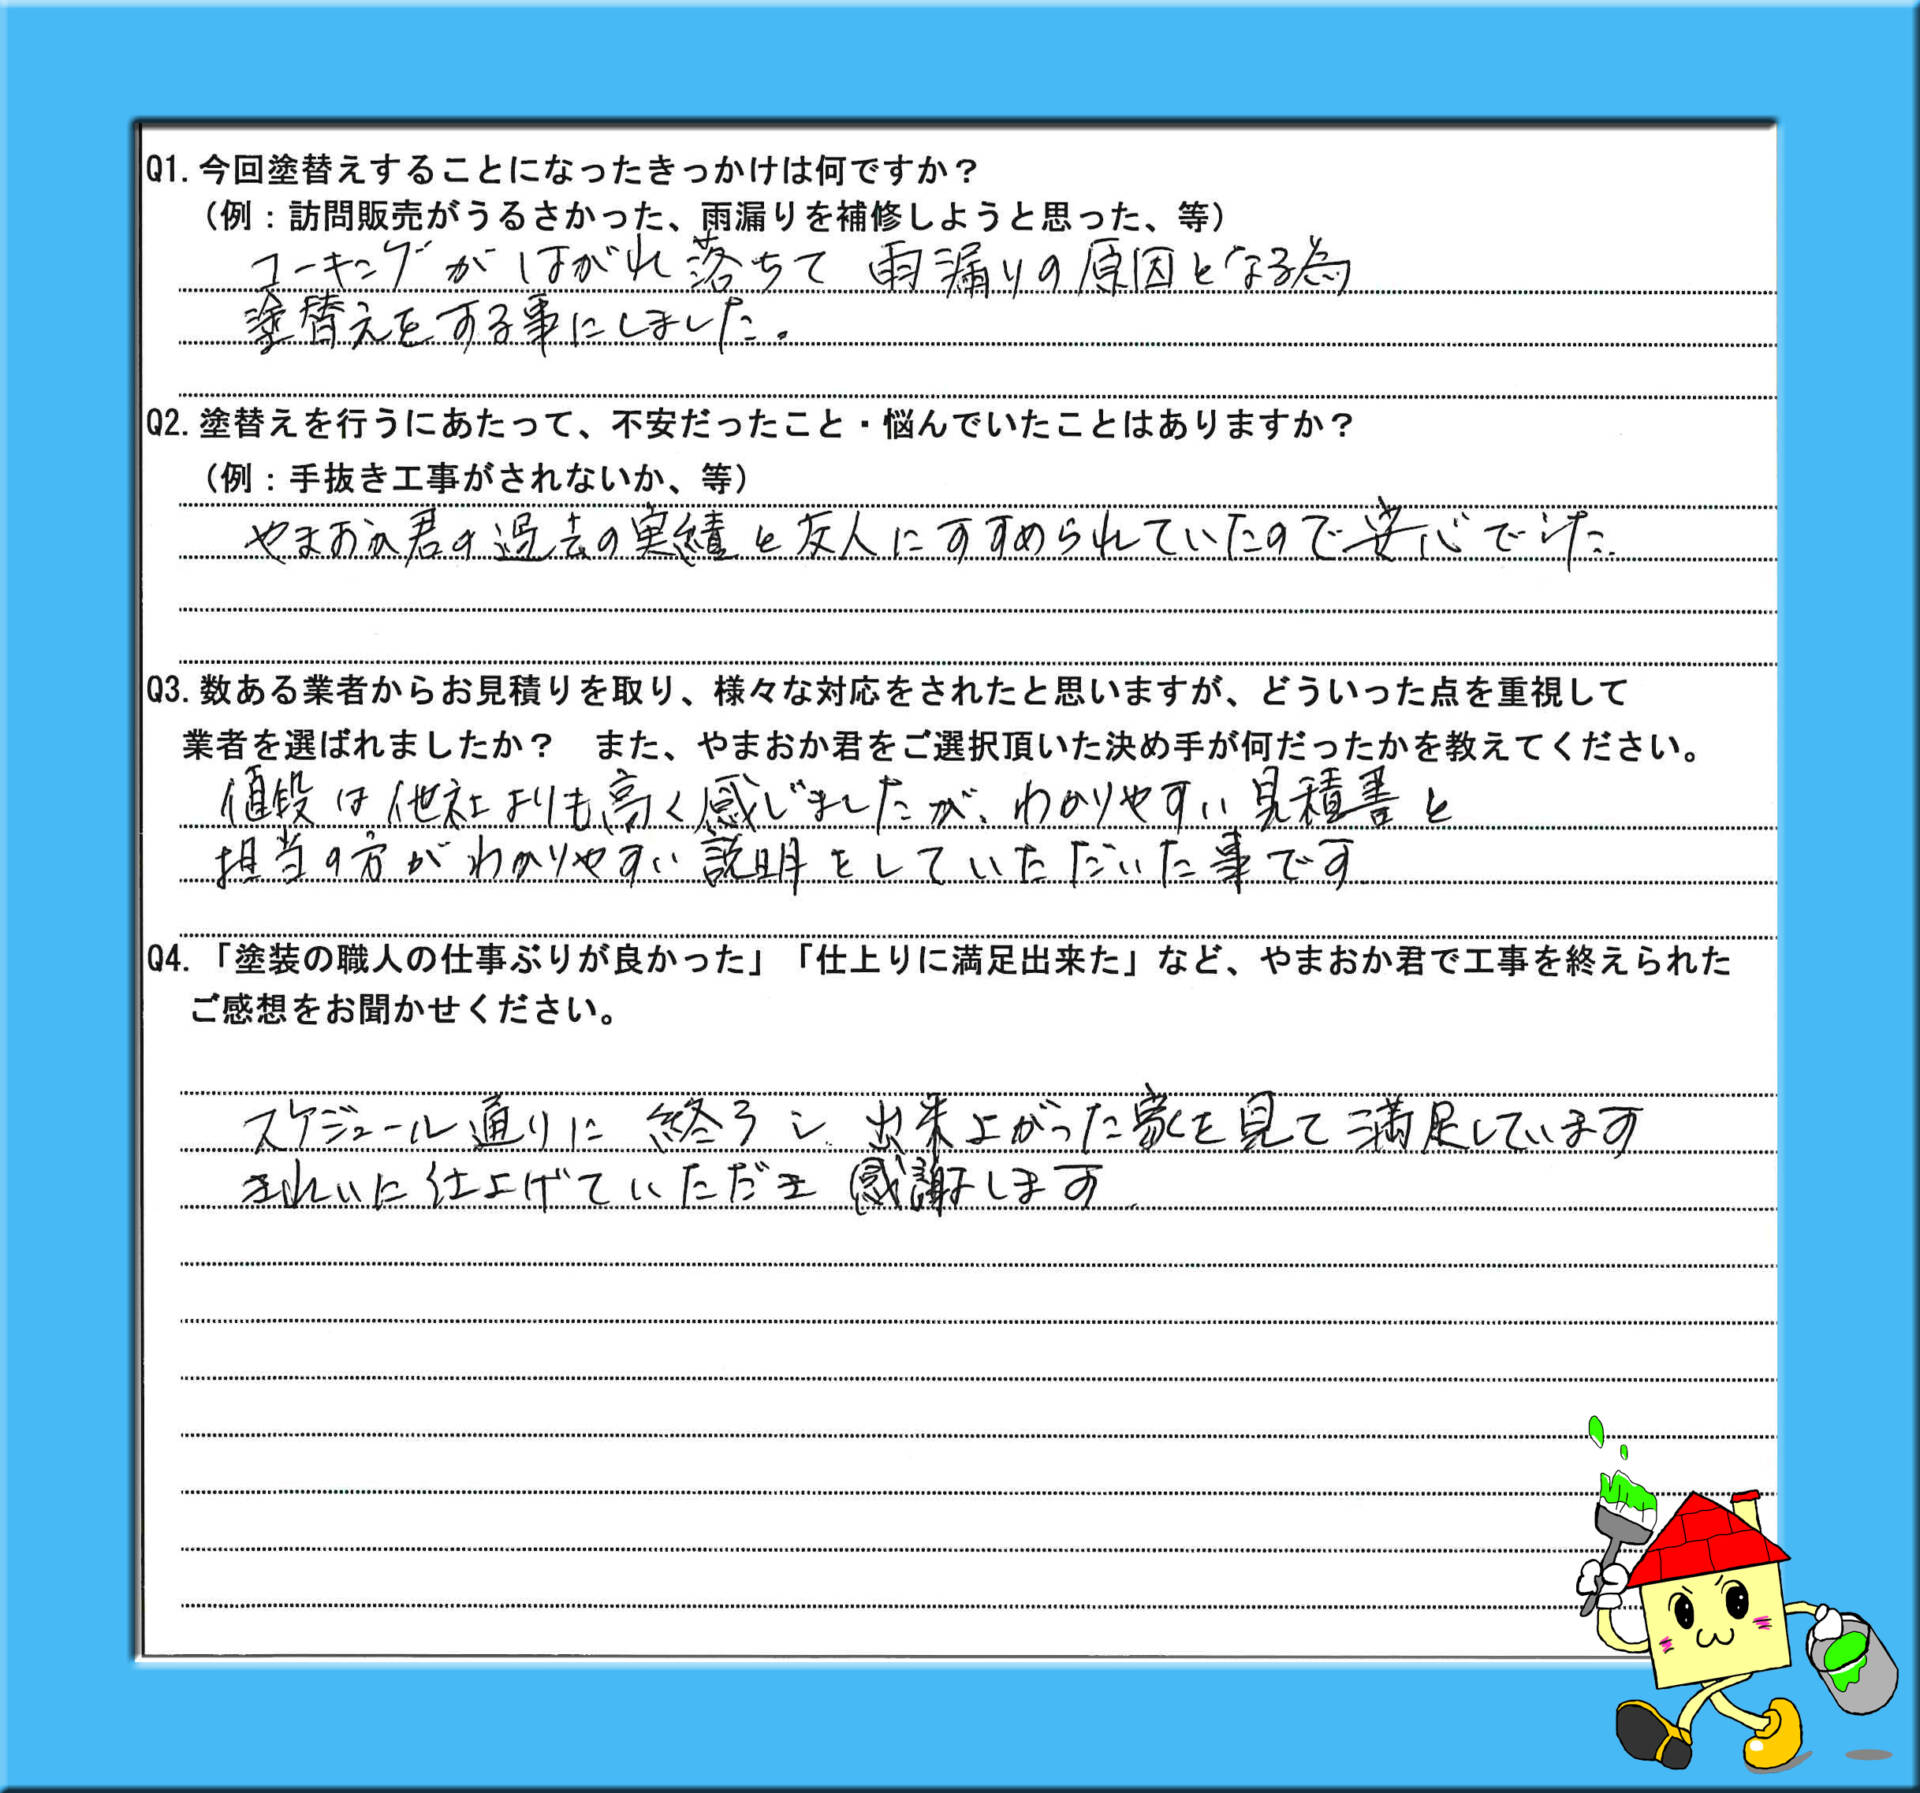 Q1. 今回塗替えすることになったきっかけは何ですか？
（例：訪問販売がうるさかった、雨漏りを補修しようと思った、等）
コーキングがはがれ落ちて 雨漏りの原因となる為
塗替えをする事にしました。
Q2. 塗替えを行うにあたって、不安だったこと・悩んでいたことはありますか？
（例：手抜き工事がされないか、等）
やまおか君の過去の実績と友人にすすめられていたので安心でした.
Q3. 数ある業者からお見積りを取り、様々な対応をされたと思いますが、どういった点を重視して
業者を選ばれましたか？ また、やまおか君をご選択頂いた決め手が何だったかを教えてください。
値段は他社よりも高く感じましたが、わかりやすい見積書と
担当の方がわかりやすい説明をしていただいた事です
Q4. 「塗装の職人の仕事ぶりが良かった」「仕上りに満足出来た」など、やまおか君で工事を終えられた
ご感想をお聞かせください。
スケジュール通りに 出来上がった家を見て満足しています
きれいに仕上げていただき 感謝します.